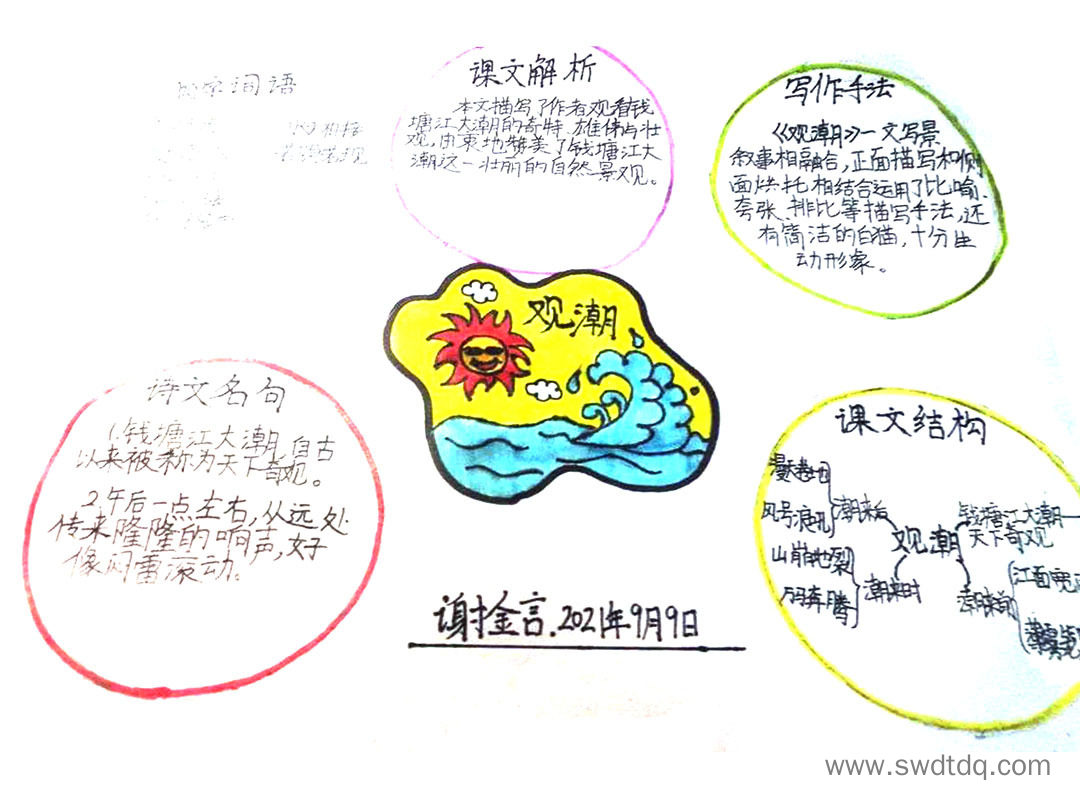 词语
课文解析
本文描写了作者观看钱
塘江大潮的奇特、雄伟与壮
观,由衷地赞美了钱塘江大
潮这一壮丽的自然景观。
写作手法
《观潮》一文写景
叙事相融合,正面描写和侧
面烘托相结合运用了比喻、
夸张、排比等描写手法,还
有简洁的白猫,十分生
动形象。
观潮
诗文名句
1.钱塘江大潮,自古
以来被称为天下奇观。
2.午后一点左右,从远处
传来隆隆的响声,好
像闷雷滚动。
课文结构
漫天卷地
风号浪吼
潮来后
山崩地裂
万马奔腾
潮来时
观潮
钱塘江大潮—
天下奇观
潮来前
江面宽
谢金言.2021年9月9日
www.swdtdq.com